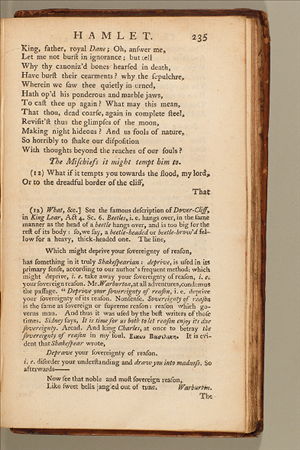 HAMLET. 235
King, father, royal Dane; Oh, anſwer me,
Let me not burſt in ignorance; but tell
Why thy canoniz'd bones hearſed in death,
Have burſt their cearments? why the ſepulchre,
Wherein we ſaw thee quietly in urned,
Hath op'd his ponderous and marble jaws,
To caſt thee up again? What may this mean,
That thou, dead coarſe, again in complete ſteel,
Reviſit'ſt thus the glimpſes of the moon,
Making night hideous? And us fools of nature,
So horribly to ſhake our diſpoſition
With thoughts beyond the reaches of our ſouls?
The Miſchiefs it might tempt him to.
(12) What if it tempts you towards the flood, my lord,
Or to the dreadful border of the cliff,
That
(12) What, &c.] See the famous deſcription of Dover-Cliff,
in King Lear, Act 4. Sc. 6. Beetles, i.e. hangs over, in the ſame
manner as the head of a beetle hangs over, and is too big for the
reſt of its body: ſo, we ſay, a beetle-headed or beetle-brow'd fel-
low for a heavy, thick-headed one. The line,
Which might deprive your ſovereignty of reaſon,
has ſomething in it truly Shakeſpearian: deprive, is uſed in its
primary ſenſe, according to our author's frequent method: which
might deprive, i. e. take away your ſovereignty of reaſon, i. e.
your ſovereign reaſon. Mr. Warburton, at all adventures, condemns
the paſſage. "Deprive your ſovereignty of reaſon, i. e. deprive
your ſovereignty of its reaſon. Nonſenſe. Sovereignty of reaſon
is the ſame as ſovereign or ſupreme reaſon: reaſon which go-
verns man. And thus it was uſed by the beſt writers of thoſe
times. Sidney ſays, It is time for us both to let reaſon enjoy its due
ſovereignty. Arcad. And king Charles, at once to betray the
ſovereignty of reaſon in my ſoul. It is evi-
dent that Shakeſpear wrote,
Deprave your ſovereignty of reaſon.
i. e. diſorder your underſtanding and draw you into madneſs. So
afterwards——
Now ſee that noble and moſt ſovereign reaſon,
Like ſweet bells jangled out of tune. Warburton.
The